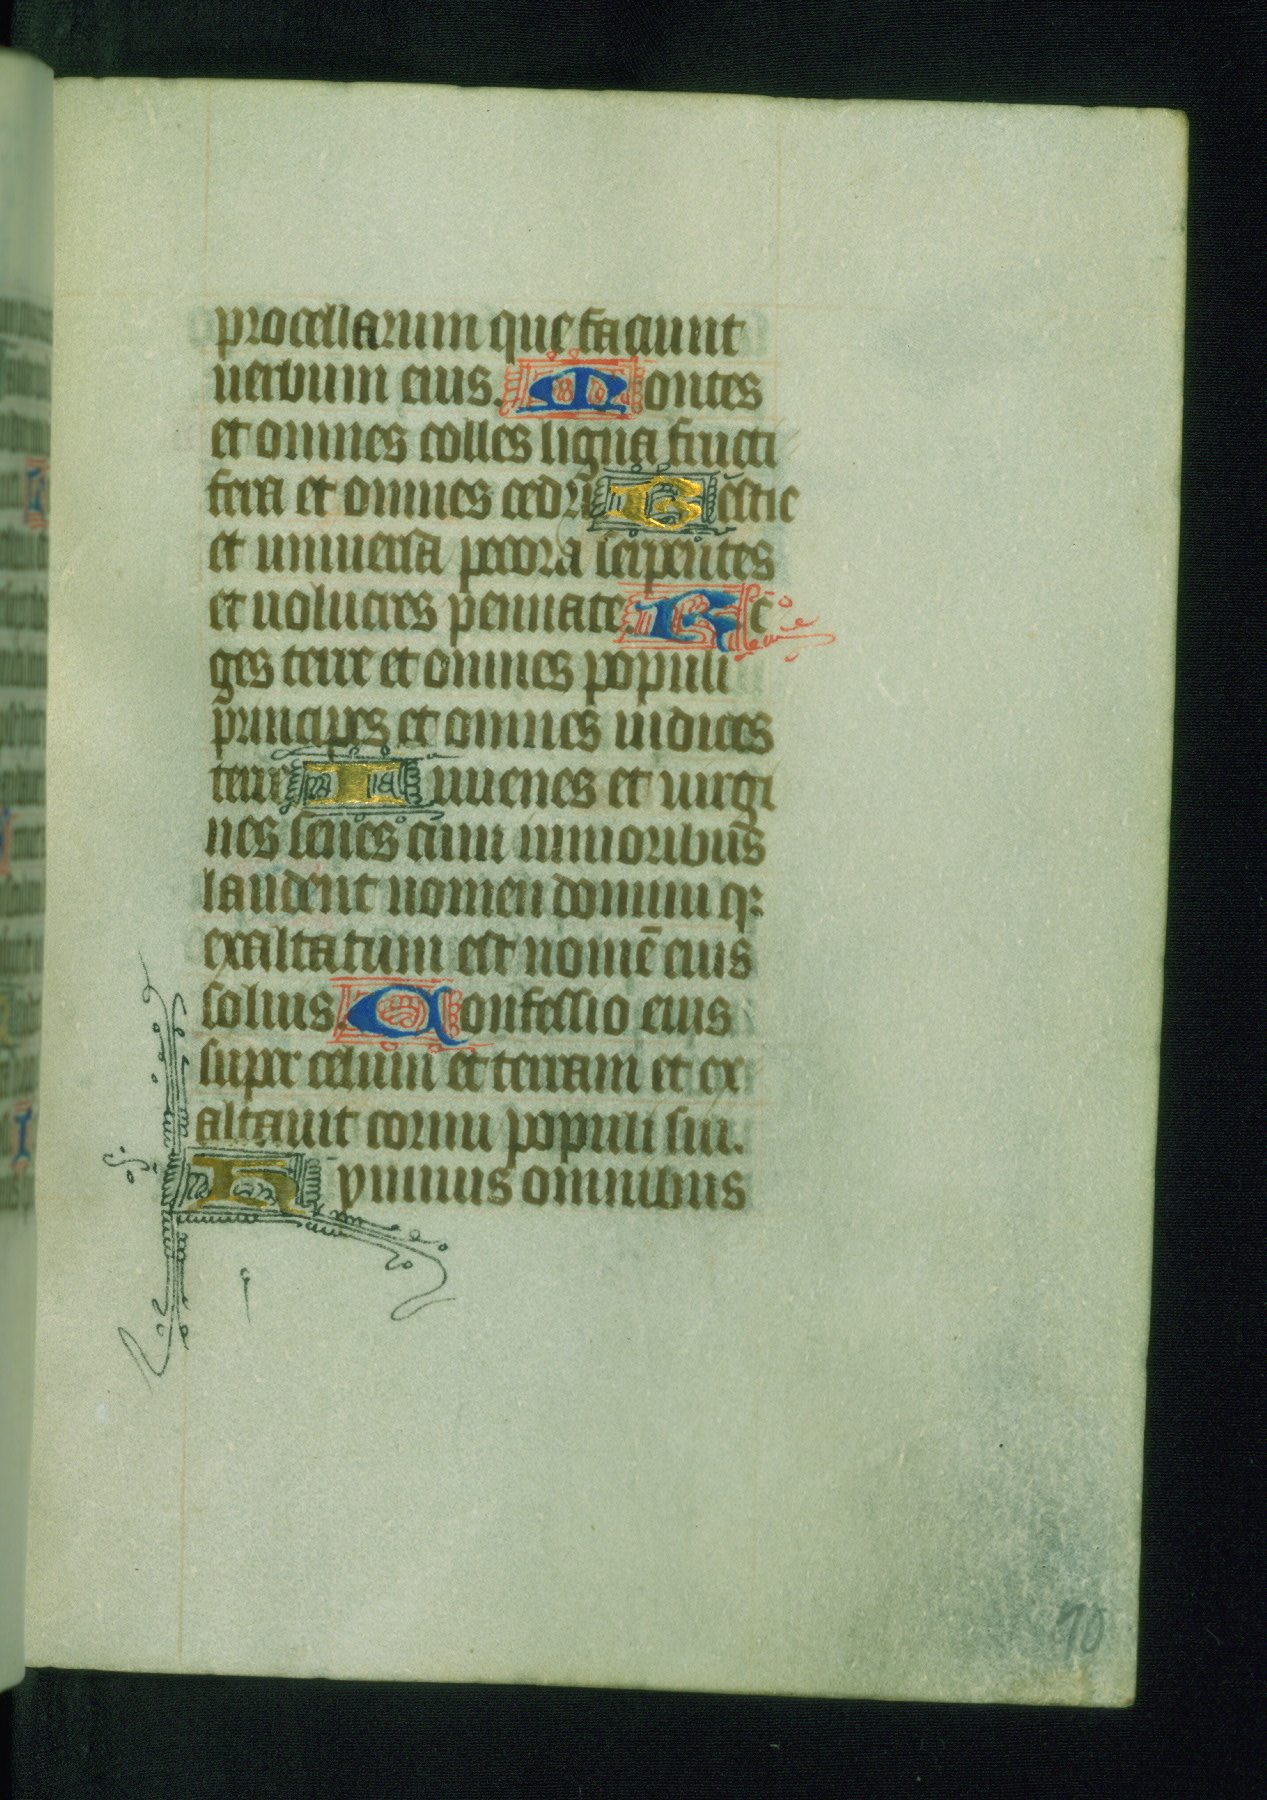 procellarum que faciunt
uerbum eius. Montes
et omnes colles ligna fructi
fera et omnes cedri Bestie
et uniuersa pecora serpentes
et uolucres pennate. Re
ges terre et omnes populi
principes et omnes iudices
terre Iuuenes et uirgi
nes senes cum iunioribus
laudent nomen domini q:
exaltatum est nomē eius
solius. Confessio eius
super celum et terram et ex
altauit cornu populi sui.
Hymnus omnibus
70